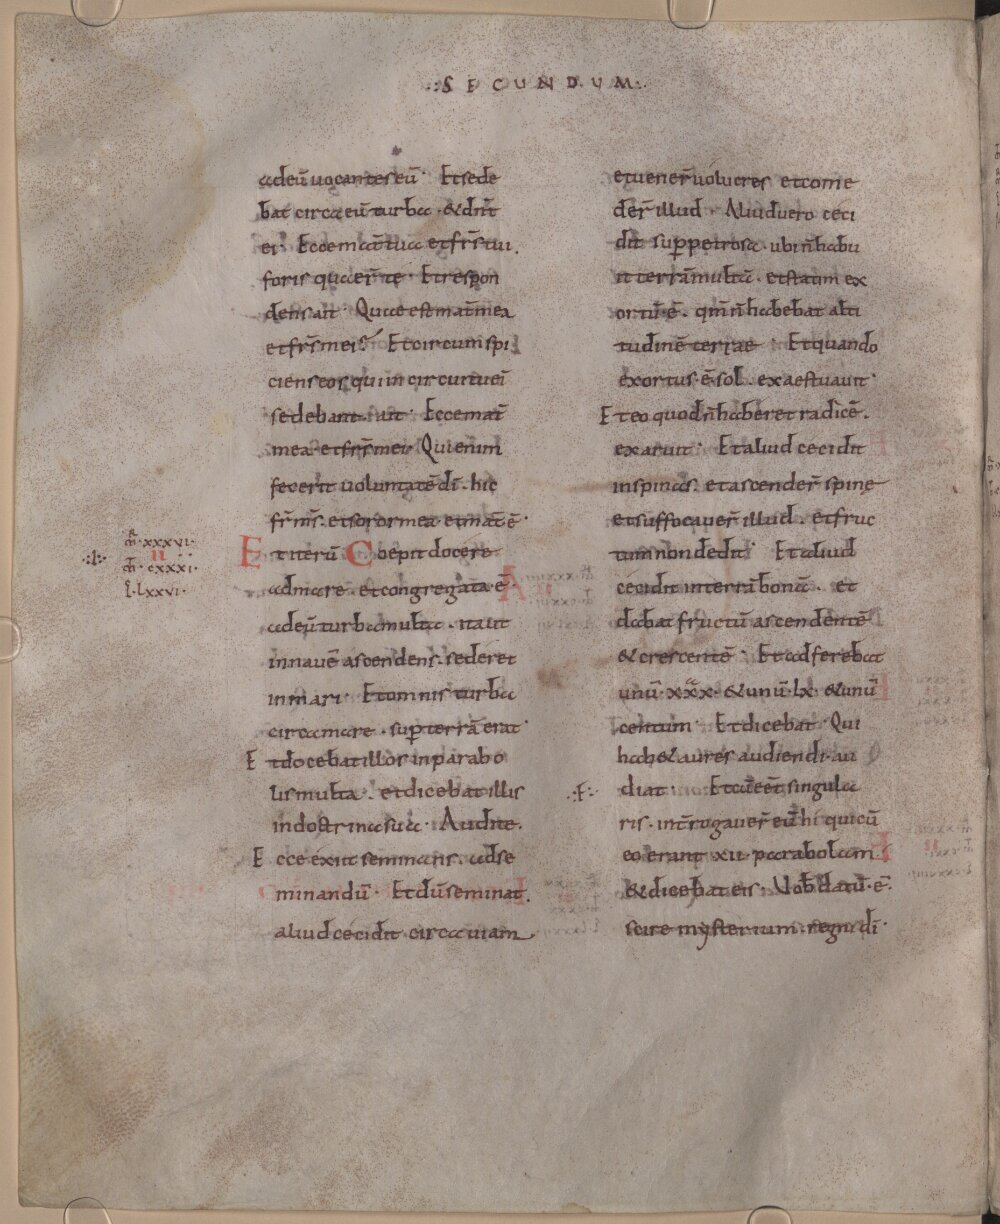 ·:SECUNDUM:·
adeū uocantes eū· Et sede
bat circa eū turba· & dn̄t
ei· Ecce mat̄ tua et fr̄s tui
foris quaer̄t te· Et respon
dens ait· Quae est mat̄ mea
et fr̄s mei· Et circumspi
ciens eos qui in circuitu ei
sedebant· ait· Ecce mat̄
mea et fr̄s mei· Qui enim
fecerit uoluntatē dī· hic
fr̄ ms̄· et soror mea et mat̄ ē·
Et iterū Coepit docere
ad mare· et congregata ē·
ad eū turba multa· ita ut
in nauē ascendens· sederet
in mari· Et omnis turba
circa mare· sup̄ terrā erat·
Et docebat illos in parabo
lis multa· et dicebat illis
in doctrina sua· Audite·
Ecce exiit seminans· ad se
minandū· Et dū seminat·
aliud cecidit circa uiam
m̄·xxxvi·
·I· II
m̄·cxxxi·
l·lxxvi·
et uener̄ uolucres et come
der̄ illud· Aliud uero ceci
dit sup̄ petrosa· ubi n̄ habu
it terrā multā· et statim ex
ortū ē· qm̄ n̄ habebat alti
tudinē terrae· Et quando
exortus ē sol· exaestuauit·
Et eo quod n̄ haberet radicē·
exaruit· Et aliud cecidit
in spinas· et ascender̄ spinę
et suffocauer̄ illud· et fruc
tum non dedit· Et aliud
cecidit in terrā bonā· et
dabat fructū ascendentē
& crescentē· Et adferebat
unū·xxx·& unū·lx·& unū
centum· Et dicebat· Qui
hab& aures audiendi· au
·F· diat· Et cū eēt singula
ris· int̄rogauer̄ eū hi qui cū
eo erant xii· parabolam·
& dicebat eis· Uob̄ datū ē·
scire mysterium· regni dī·